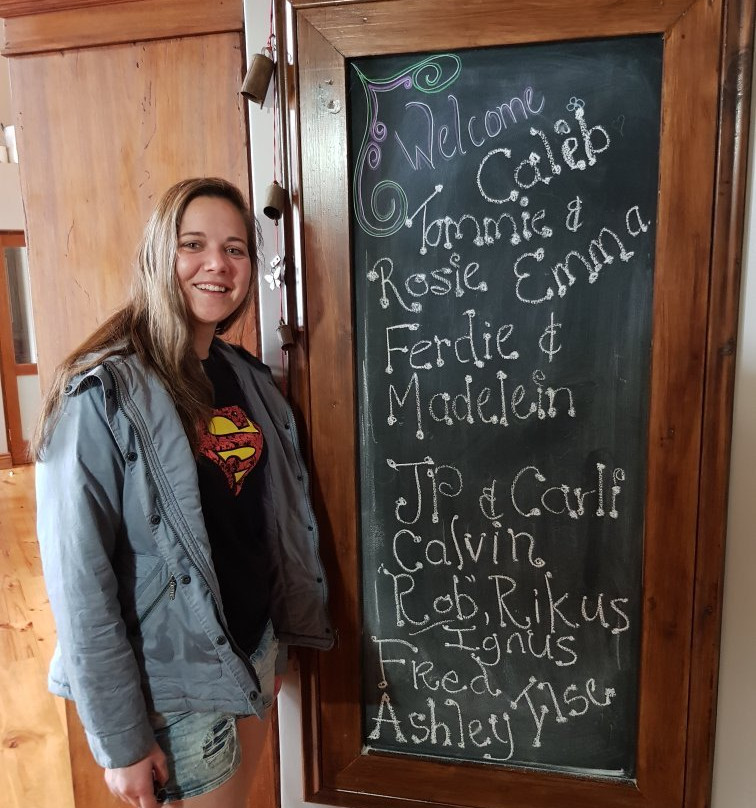 Welcome
Caleb
Tommie &
Rosie Emma
Ferdie &
Madelein
JP & Carli
Calvin
Rob, Rikus
Ignus
Fred
Ashley Ilse
S